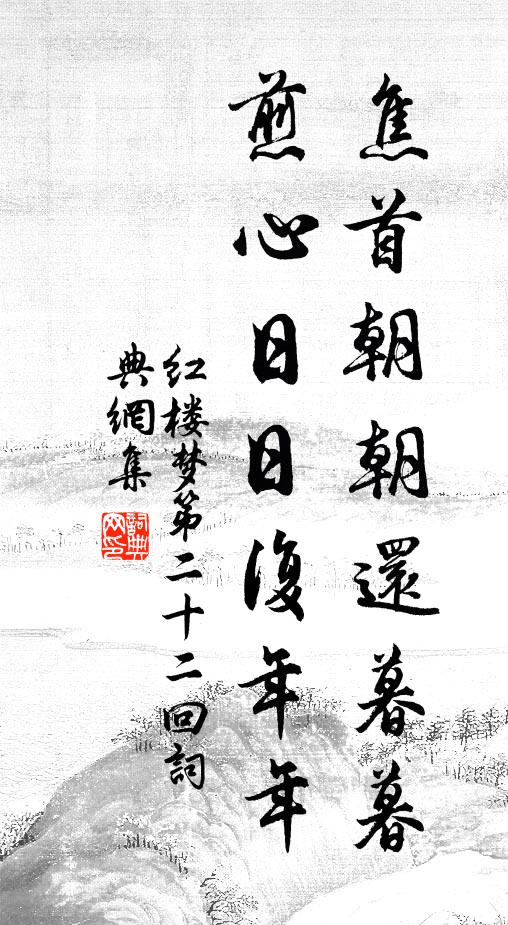 焦首朝朝還暮暮
煎心日日復年年
红楼梦第二十二回詞
典網集
詞典
网印